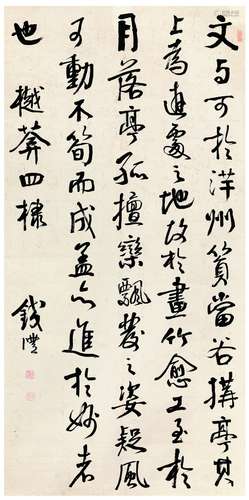 文与可於洋州篔當谷搆亭其
上為遊處之地故於畫竹愈工至於
月落亭孤檀欒飄發之姿疑風
可動不筍而成蓋亦進於妙者
也 樾莽四棣 錢灃